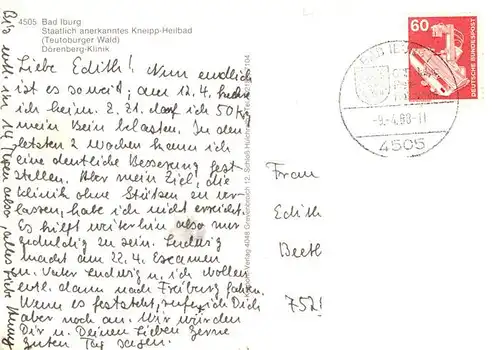 4505 Bad Iburg
Staatlich anerkanntes Kneipp-Heilbad
(Teutoburger Wald)
Dörenberg-Klinik
Liebe Edith! Nun endlich
ist es soweit; am 12.4. kehre
ich heim. Z. Zt. darf ich 50 Kg
mein Bein belasten. In den
letzten 2 Wochen kann ich
eine deutliche Besserung fest
stellen. Aber mein Ziel, die
Klinik ohne Stützen zu ver
lassen, habe ich nicht erreicht.
Es heißt weiterhin also nur
geduldig zu sein. Ludwig
macht am 22.4. Examen
u. Vater Ludwig u. ich wollen
evtl. dann nach Freiburg fahren.
Wenn es feststeht, rufe ich Dich
aber noch an. Wir würden
Dir u. Deinen Lieben gerne
guten Tag sagen.
Bis in 14 Tagen also, alles Liebe
60
DEUTSCHE BUNDESPOST
-9.-4.88-11
4505
Frau
Edith
Beetl
752
Verlag 4048 Grevenbroich 12, Schloß Hülchrath